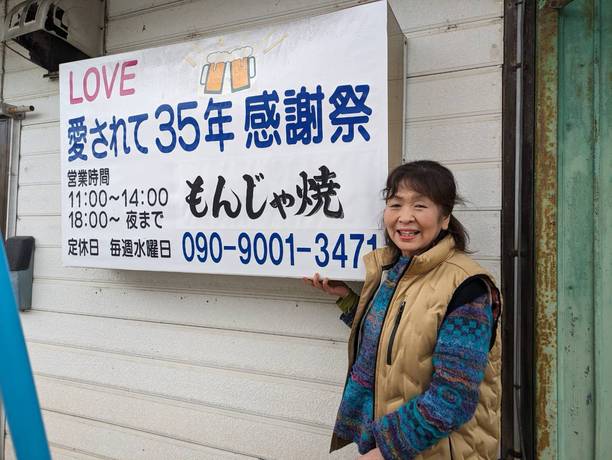 LOVE
愛されて35年 感謝祭
営業時間
11:00〜14:00
18:00〜 夜まで
もんじゃ焼
定休日 毎週水曜日 090-9001-3471